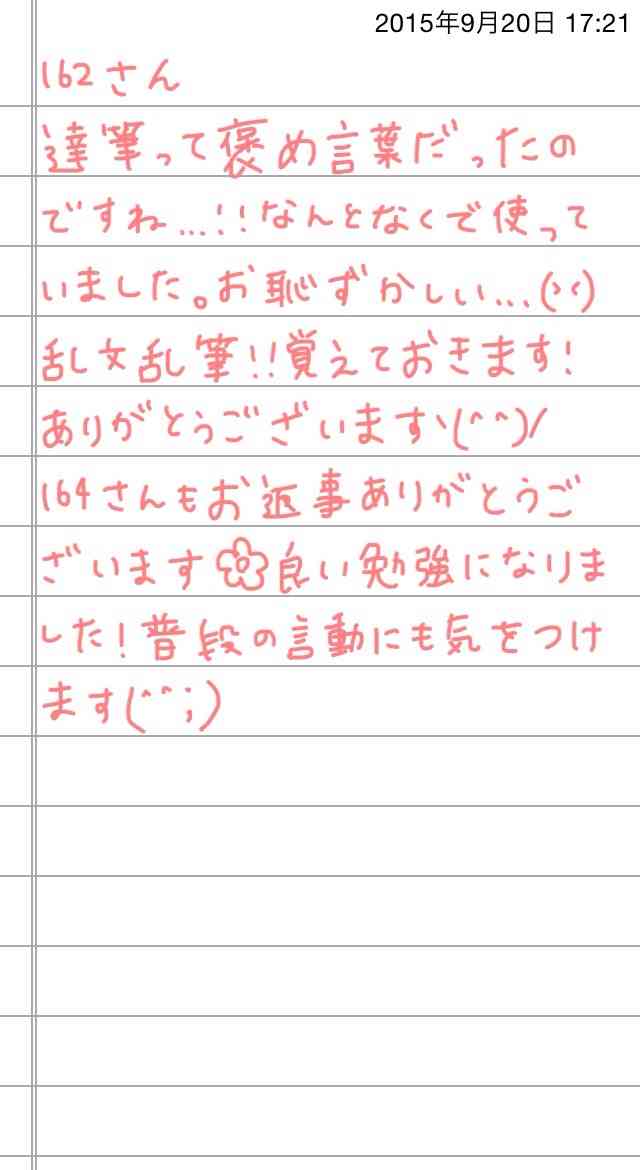 2015年9月20日 17:21
162さん
達筆って褒め言葉だったの
ですね...!!なんとなくで使って
いました。お恥ずかしい...(>_<)
乱文乱筆!!覚えておきます!
ありがとうございますヽ(^^)/
164さんもお返事ありがとうご
ざいます✿良い勉強になりま
した!普段の言動にも気をつけ
ます(^^;)